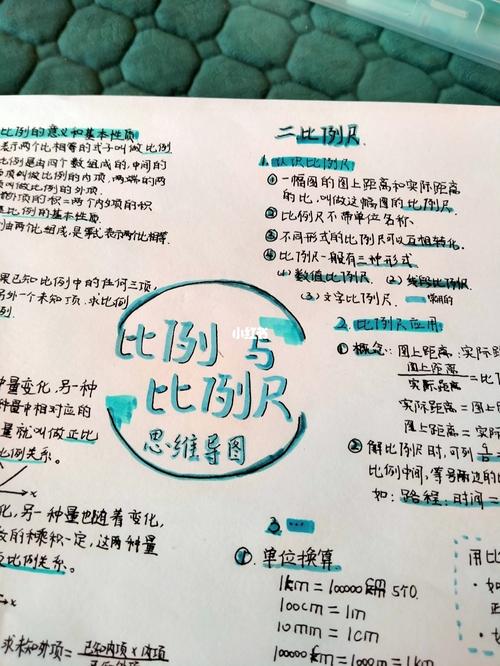 比例的意义和基本性质
表示两个比相等的式子叫做比例
比例是由四个数组成的,中间的
项叫做比例的内项,两端的两
项叫做比例的外项.
外项的积=两个内项的积
比例的基本性质.
由两比组成,是等式表示两个比相等.
果已知比例中的任何三项,
另外一个未知项.求比例
例.
种量变化,另一种
种量中相对应的
量就叫做正比
比例关系。
化,另一种量也随着变化,
数的乘积一定,这两种量
反比例关系。
求未知外项=已知内项×内项
已知外项
比例与
比例尺
思维导图
小红书
二比例尺
1.认识比例尺
①一幅图的图上距离和实际距离
的比,叫做这幅图的比例尺
②比例尺不带单位名称
③不同形式的比例尺可以互相转化.
④比例尺一般有三种形式
(1)数值比例尺.(2)线段比例尺
(3)文字比例尺.常用的
2.比例尺应用
①概念:图上距离:实际距
图上距离
实际距离
=比
实际距离=图
图上距离=实
②解比例尺时,可列
比例中间,等号两边的比
如:路程:时间=
3...
①单位换算
1km=100000cm 5个0.
100cm=1m
10mm=1cm
100000cm=1km
用比